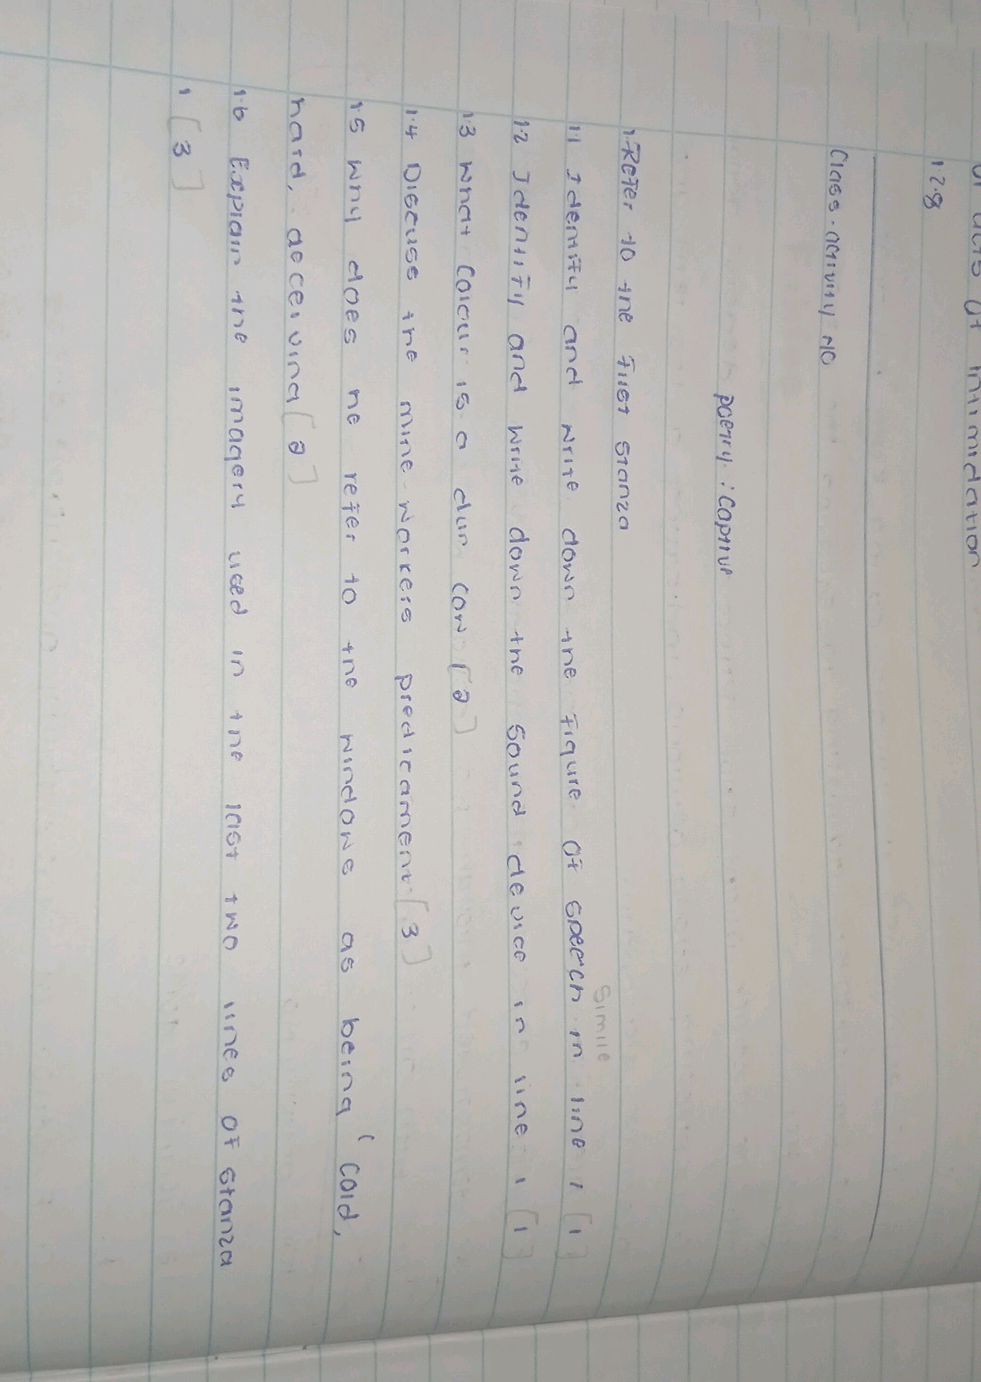 of acts of intimidation
1.2.8
Class activity NO
poetry : Captive
1. Refer to the first stanza
simile
1.1 Identify and write down the figure of speech in line 1 [1]
1.2 Identify and write down the sound device in line 1 [1]
1.3 what colour is a dun cow [2]
1.4 Discuse the mine workers predicament [3]
1.5 why does he refer to the windows as being ' cold,
hard, deceiving [2]
1.6 Explain the imagery used in the last two lines of stanza
1 [3]